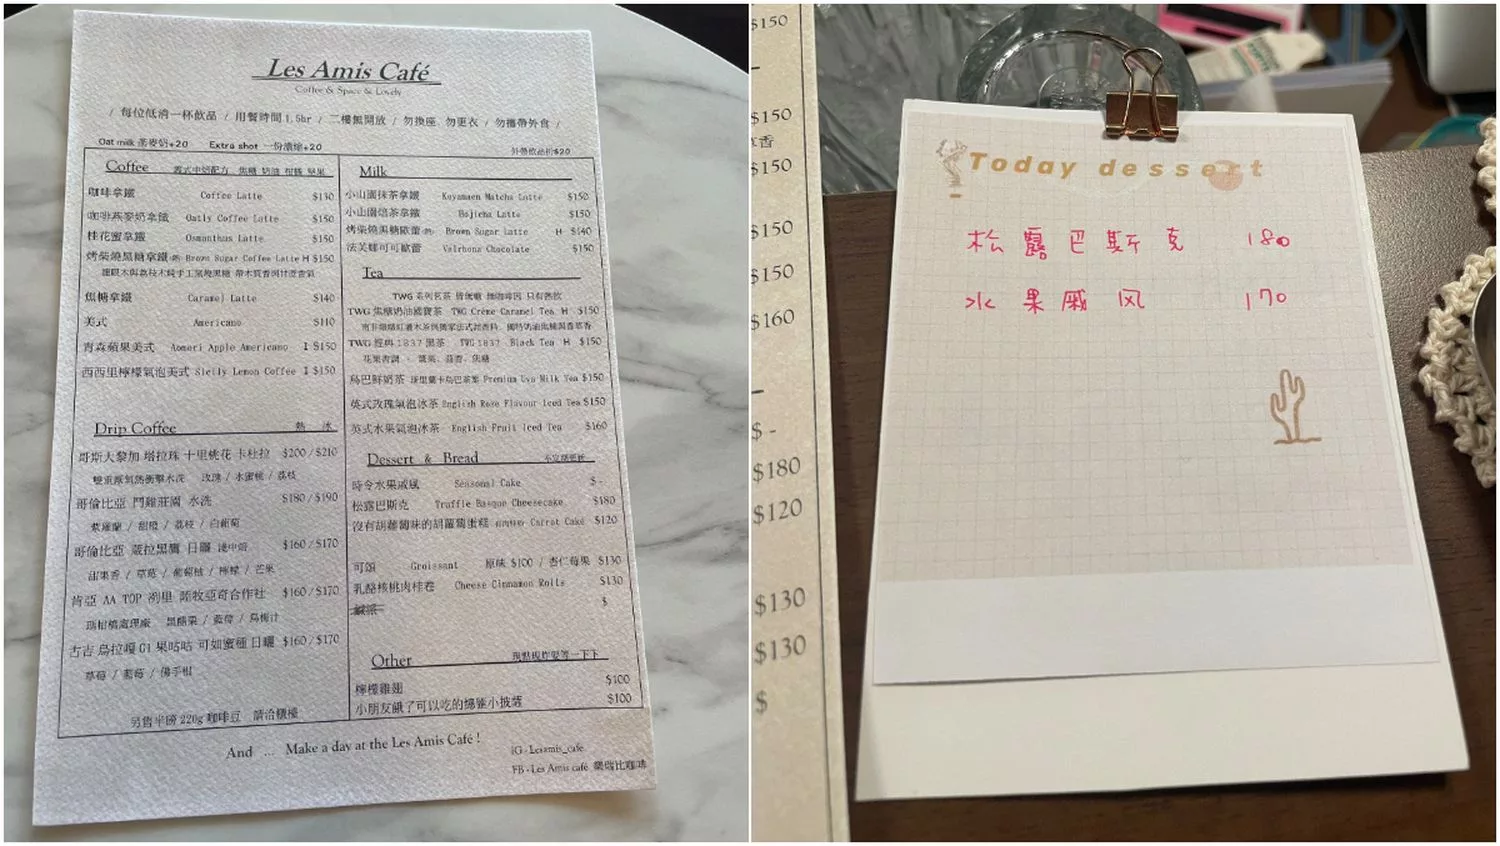 Les Amis Café
Coffee & Space & Lovely
/ 每位低消一杯飲品 / 用餐時間1.5hr / 二樓無開放 / 勿換座、勿更衣 / 勿攜帶外食 /
Oat milk 燕麥奶+20 Extra shot 一份濃縮+20
外帶飲品折$20
Coffee 義式中焙配方 焦糖 奶油 柑橘 堅果
咖啡拿鐵 Coffee Latte $130
咖啡燕麥奶拿鐵 Oatly Coffee Latte $150
桂花蜜拿鐵 Osmanthus Latte $150
烤柴燒黑糖拿鐵 Brown Sugar Coffee Latte H $150
龍眼木與荔枝木純手工窯燒黑糖
焦糖拿鐵 Caramel Latte $140
美式 Americano $110
青森蘋果美式 Aomori Apple Americano I $150
西西里檸檬氣泡美式 Sicily Lemon Coffee I $150
Drip Coffee 熱 冰
哥斯大黎加 塔拉珠 十里桃花 卡杜拉 $200/$210
雙重厭氧熱衝擊水洗 玫瑰 / 水蜜桃 / 荔枝
哥倫比亞 鬥雞莊園 水洗 $180/$190
紫羅蘭 / 甜橙 / 荔枝 / 白葡萄
哥倫比亞 蔻拉黑鷹 日曬 淺中焙 $160/$170
甜果香 / 草莓 / 葡萄柚 / 檸檬 / 芒果
肯亞 AA TOP 涮里 $160/$170
瑞柑橋處理廠 黑醋栗 / 藍莓 / 烏梅汁
古吉 烏拉嘎 G1 果咕咕 可如蜜種 日曬 $160/$170
草莓 / 藍莓 / 佛手柑
另售半磅 220g 咖啡豆 請洽櫃檯
Milk
小山園抹茶拿鐵 Koyamaen Matcha Latte $150
小山園焙茶拿鐵 Hojicha Latte $150
烤柴燒黑糖歐蕾 Brown Sugar Latte H $140
法芙娜可可歐蕾 Valrhona Chocolate $150
Tea
TWG 系列茗茶 皆無糖 無咖啡因 只有熱飲
TWG 焦糖奶油國寶茶 TWG Crème Caramel Tea H $150
TWG 經典1837黑茶 TWG 1837 Black Tea H $150
花果香調 - 漿果、茴香、焦糖
烏巴鮮奶茶 斯里蘭卡烏巴茶葉 Premium Uva Milk Tea $150
英式玫瑰氣泡冰茶 English Rose Flavour Iced Tea $150
英式水果氣泡冰茶 English Fruit Iced Tea $160
Dessert & Bread 不定期更新
時令水果戚風 Seasonal Cake $ -
松露巴斯克 Truffle Basque Cheesecake $180
沒有胡蘿蔔味的胡蘿蔔蛋糕 Carrot Cake $120
可頌 Croissant 原味 $100 / 杏仁莓果 $130
乳酪核桃肉桂卷 Cheese Cinnamon Rolls $130
鹹派 $
Other 現點現炸要等一下下
檸檬雞翅 $100
小朋友餓了可以吃的總匯小披薩 $100
And ... Make a day at the Les Amis Café !
IG - Lesamis_cafe
FB - Les Amis café 樂瑞比咖啡
$150
$150
$150
$150
$150
$160
$ -
$180
$120
$130
$130
$
Today dessert
松露巴斯克 180
水果戚风 170